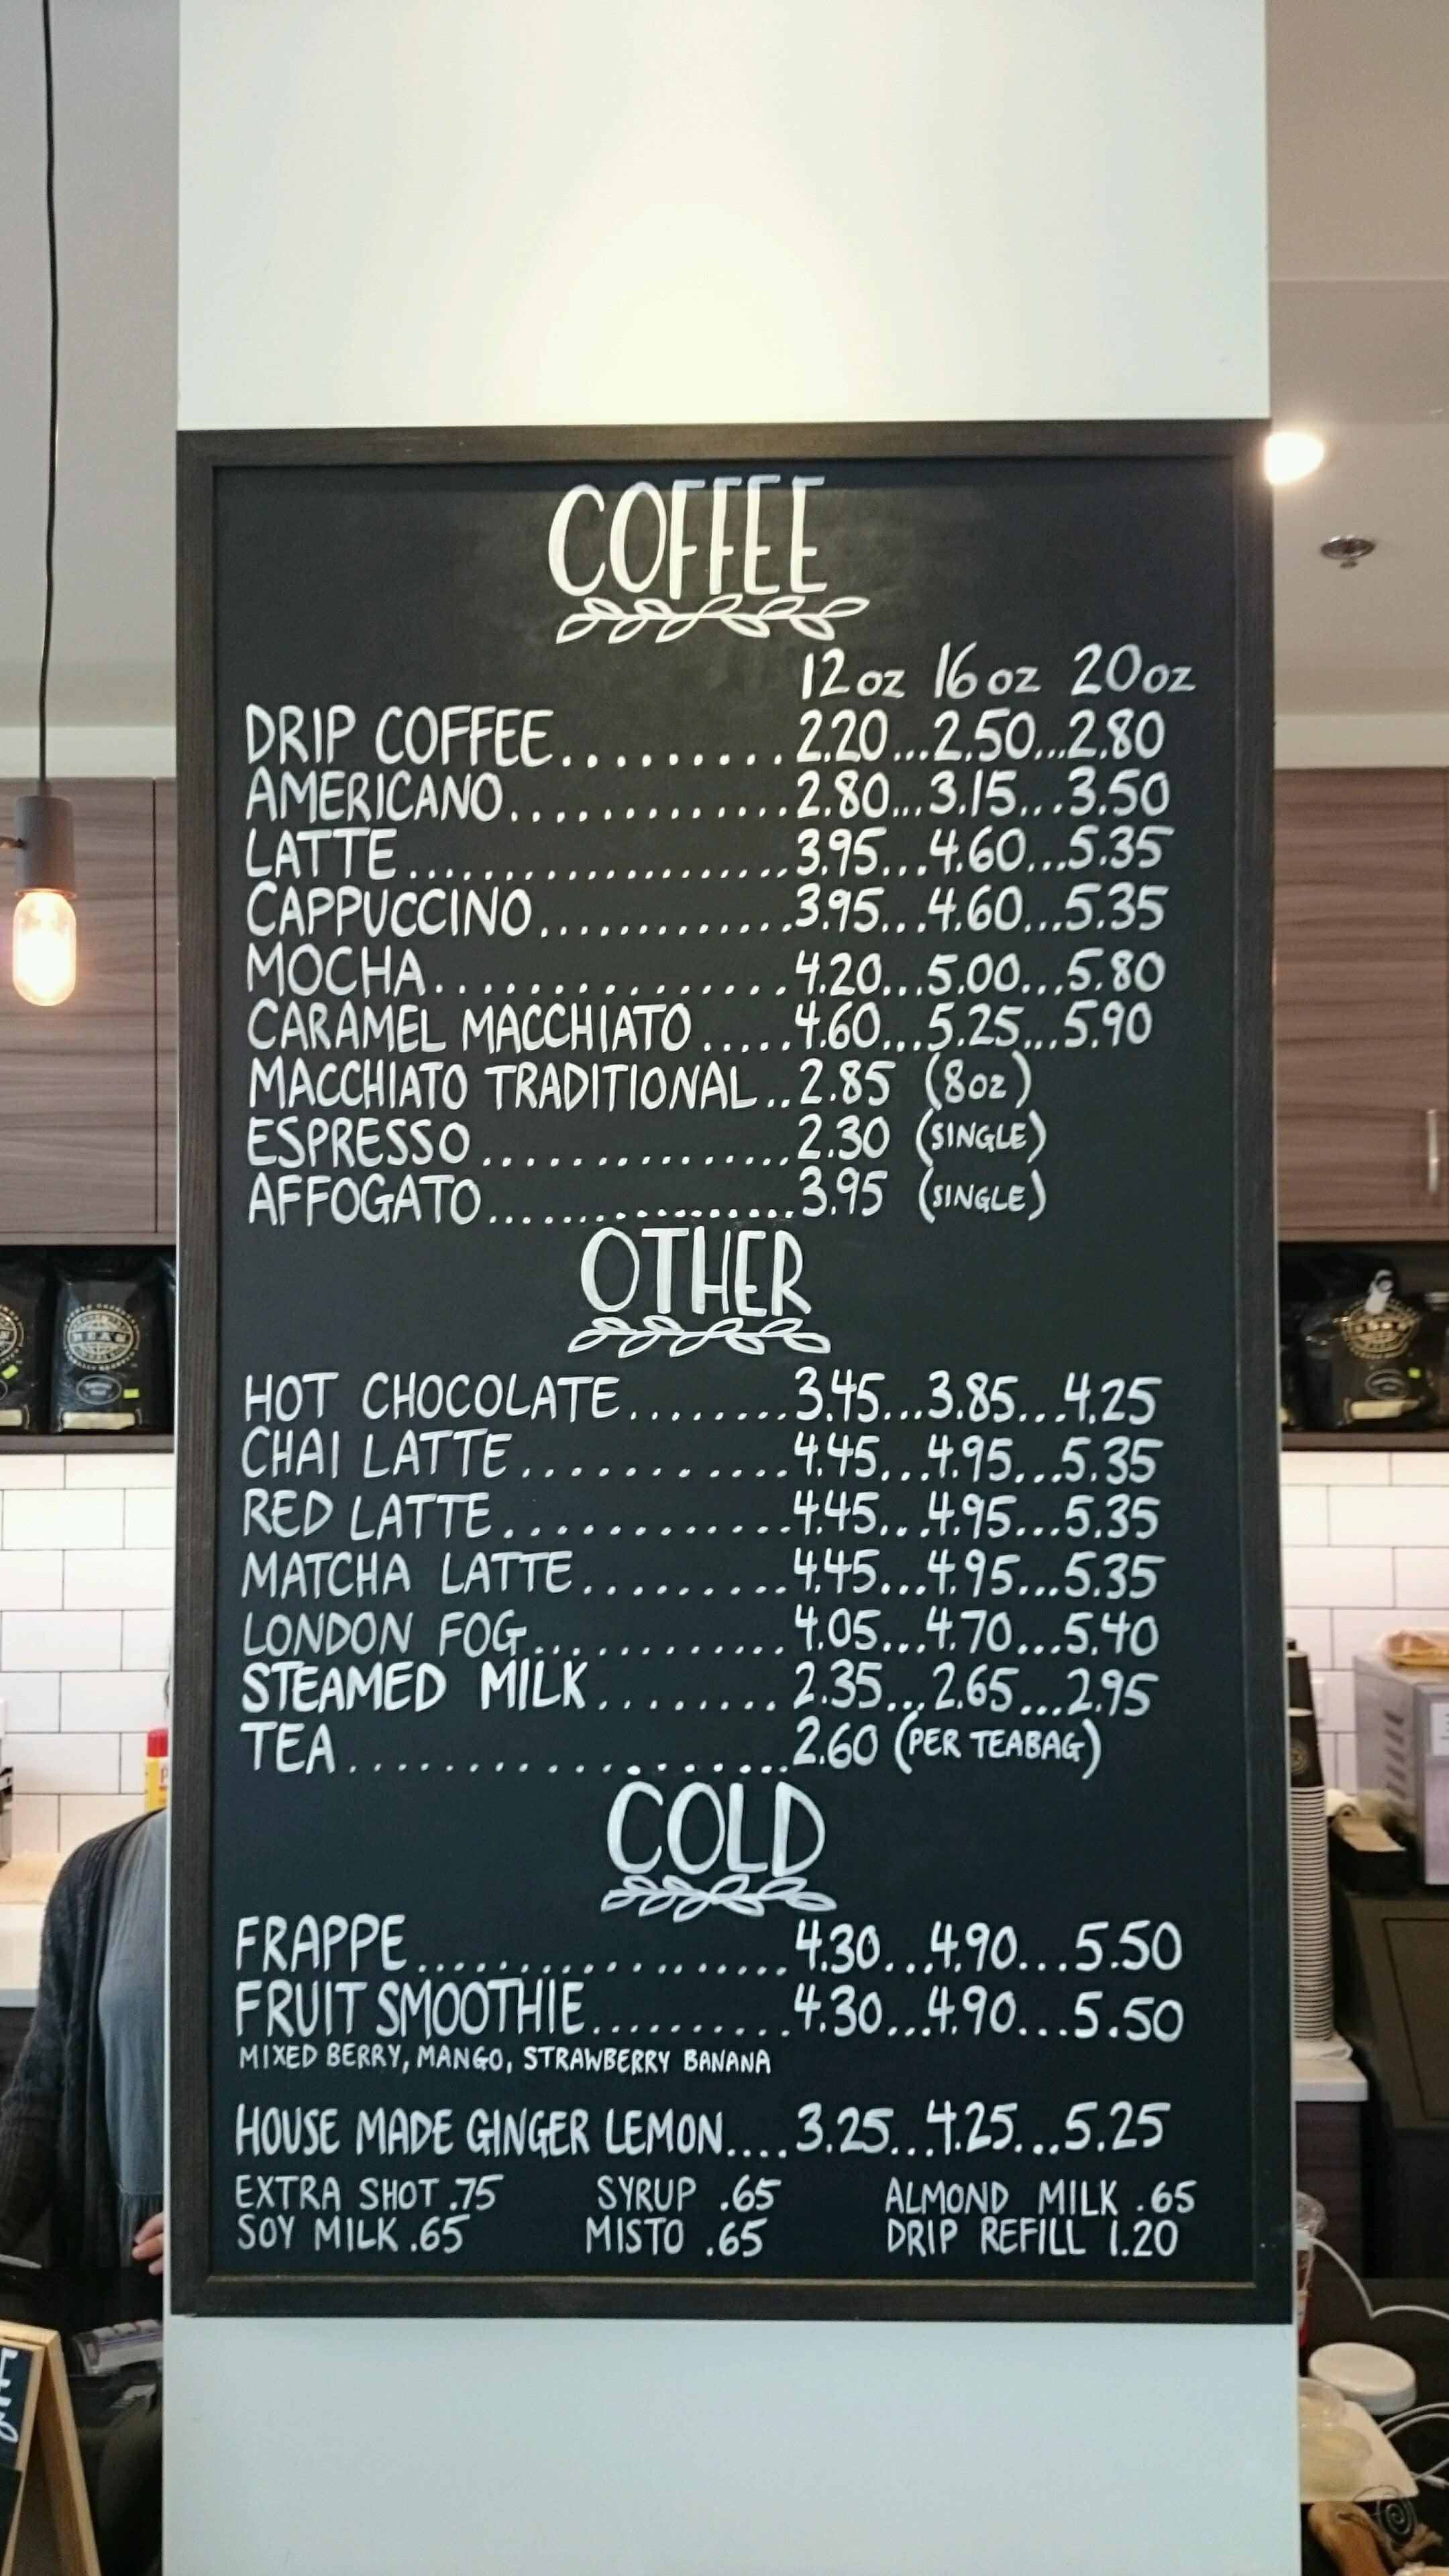 COFFEE
12oz 16oz 20oz
DRIP COFFEE.........2.20...2.50...2.80
AMERICANO.............2.80...3.15...3.50
LATTE.....................3.95...4.60...5.35
CAPPUCCINO.............3.95...4.60...5.35
MOCHA................4.20...5.00...5.80
CARAMEL MACCHIATO.....4.60...5.25...5.90
MACCHIATO TRADITIONAL..2.85 (8oz)
ESPRESSO................2.30 (SINGLE)
AFFOGATO.................3.95 (SINGLE)
OTHER
HOT CHOCOLATE........3.45...3.85...4.25
CHAI LATTE............4.45...4.95...5.35
RED LATTE............4.45...4.95...5.35
MATCHA LATTE.........4.45...4.95...5.35
LONDON FOG...........4.05...4.70...5.40
STEAMED MILK........2.35...2.65...2.95
TEA...................2.60 (PER TEABAG)
COLD
FRAPPE..................4.30...4.90...5.50
FRUIT SMOOTHIE..........4.30...4.90...5.50
MIXED BERRY, MANGO, STRAWBERRY BANANA
HOUSE MADE GINGER LEMON....3.25...4.25...5.25
EXTRA SHOT .75 SYRUP .65 ALMOND MILK .65
SOY MILK .65 MISTO .65 DRIP REFILL 1.20
BEAN